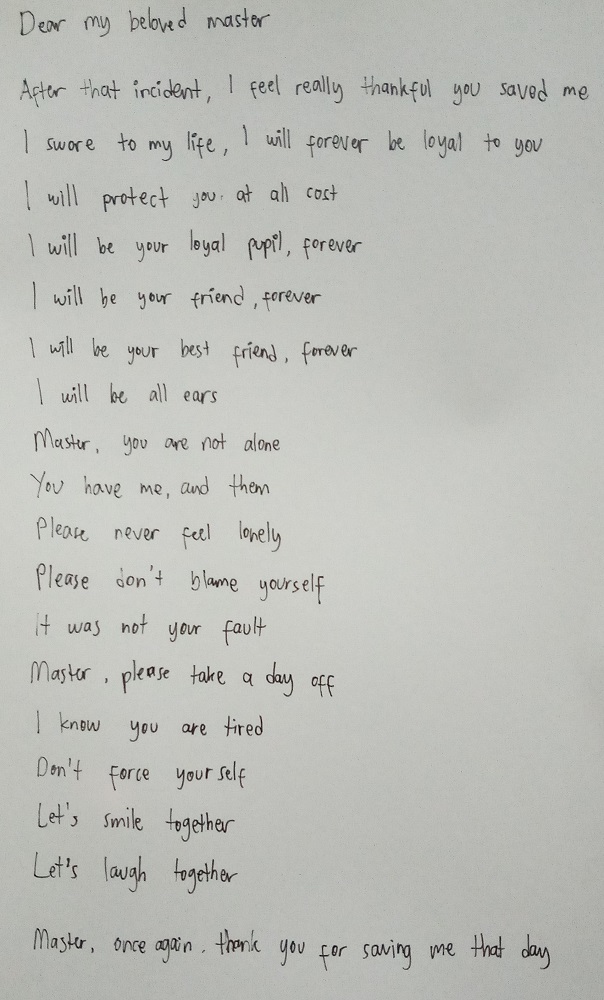 Dear my beloved master
After that incident, I feel really thankful you saved me
I swore to my life, I will forever be loyal to you
I will protect you. at all cost
I will be your loyal pupil, forever
I will be your friend, forever
I will be your best friend, forever
I will be all ears
Master, you are not alone
You have me, and them
Please never feel lonely
Please don't blame yourself
It was not your fault
Master, please take a day off
I know you are tired
Don't force yourself
Let's smile together
Let's laugh together
Master, once again, thank you for saving me that day